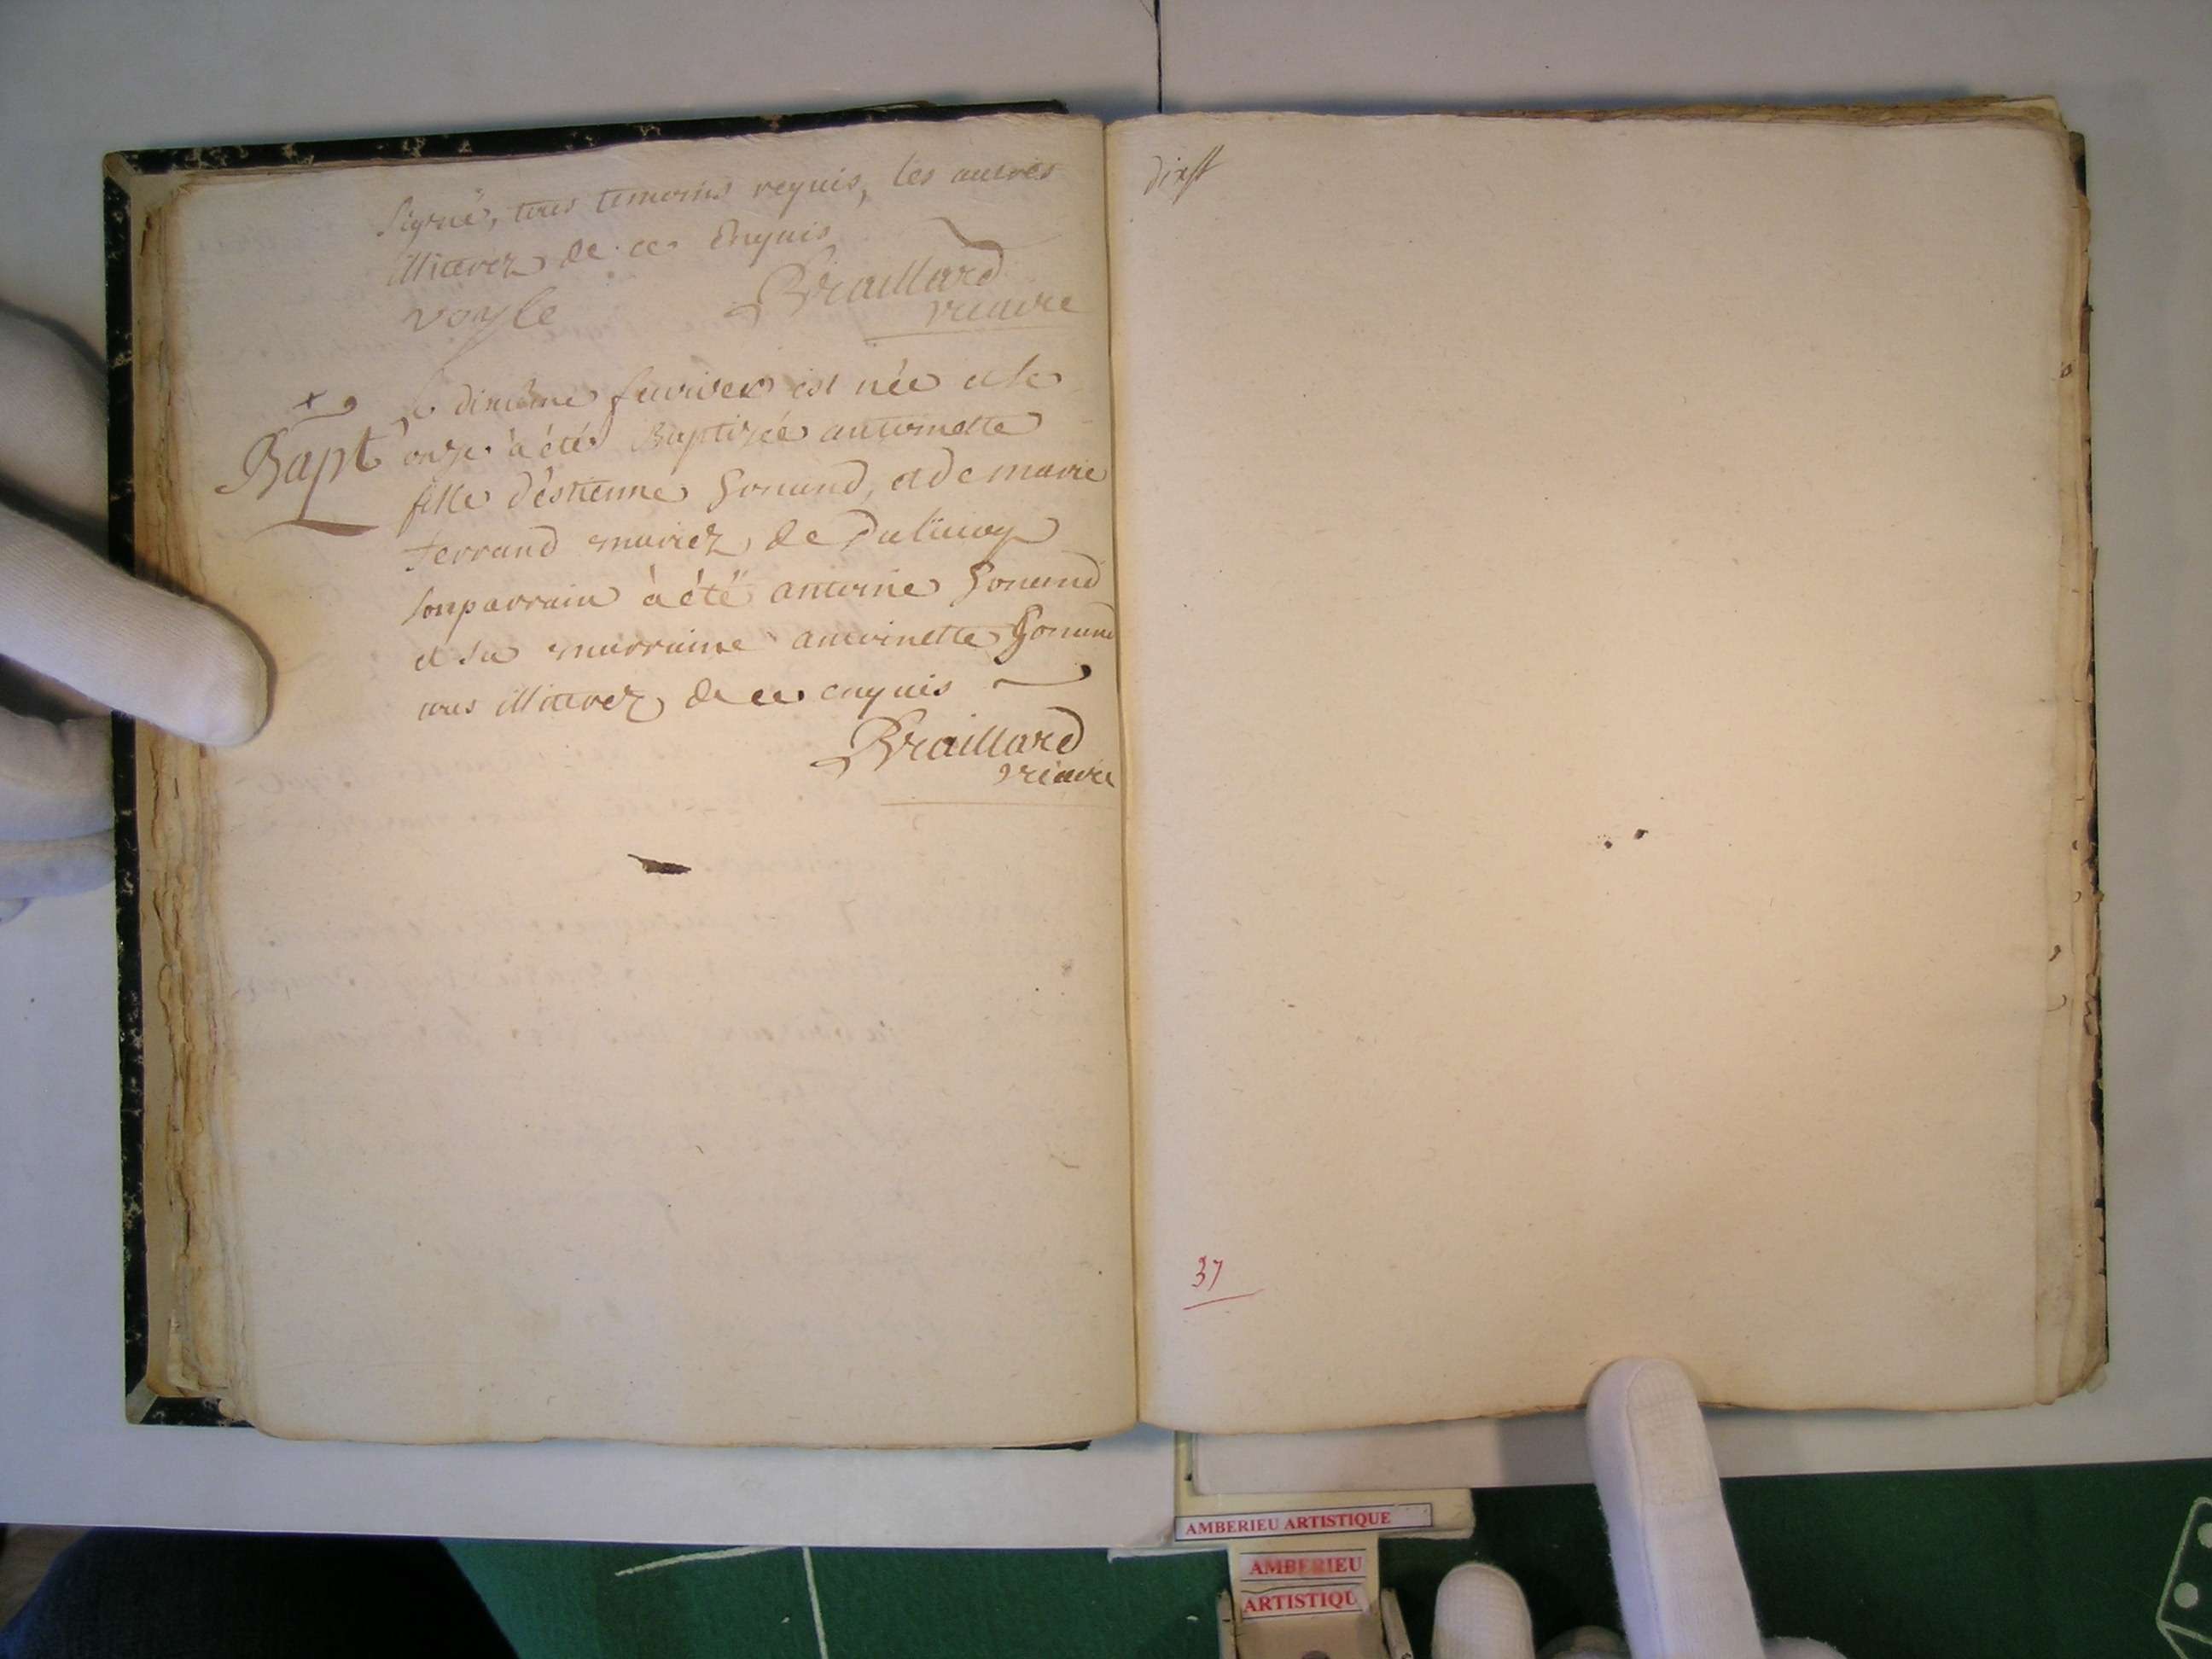 signé, tous temoins requis, les autres
illiterez de ce enquis
voyle Braillard
vicaire
Bapt
Le dixième fevrier est née et le
onze à étés Baptisée antoinette
fille d'éstienne Gonand, et de marie
ferrand mariez, de
son parrain à été antoine Gonand
et sa marraine antoinette Gonand
tous illiterez de ce enquis
Braillard
vicaire
37
AMBERIEU ARTISTIQUE
AMBERIEU
ARTISTIQU